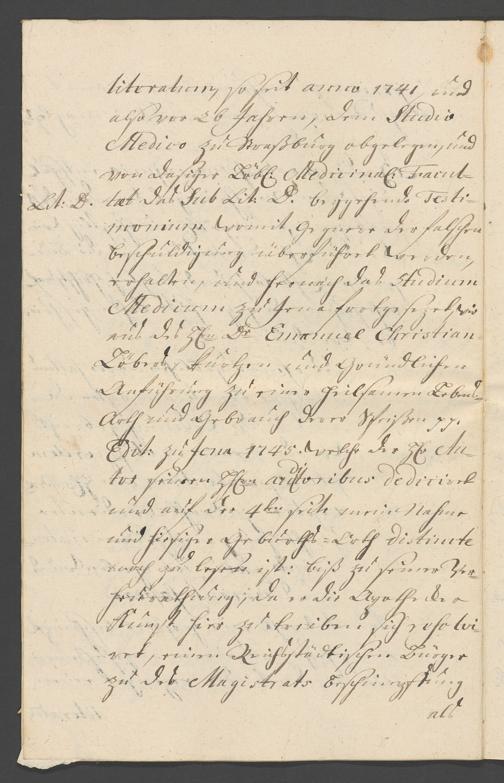 litoratum, so seit anno 1741, und
also vor 26 Jahren, dem Studio
Medico zu Straßburg obgelegen, und
von dasiger Löbl: Medicinal: Facul-
Lit: D. tät das Sub Lit: D. beygehende Testi-
monium womit Gegnere der falschen
beschuldigung überführet werden,
erhalten, und hernach das Studium
Medicum zu Jena fortgesezet, wie
aus des Hn Dr Emanuel Christian
Löbers kurtzen und Gründlichen
Anführung zu einer heilsamen Lebens-
Arth und Gebrauch derer Speißen pp.
Edit: zu Jena 1745. welche der H. Au-
tor seinen Hn auditoribus dedicirt
und auf der 4ten seite mein Nahme
und hiesiger Geburths-Orth distincte
noch zu lesen ist: biß zu seiner Ver-
heurathung, da er die Apothecker
Kunst hier zu treiben sich
einen Reichsstädtischen Bürger
zu des Magistrats Beschimpfung
als